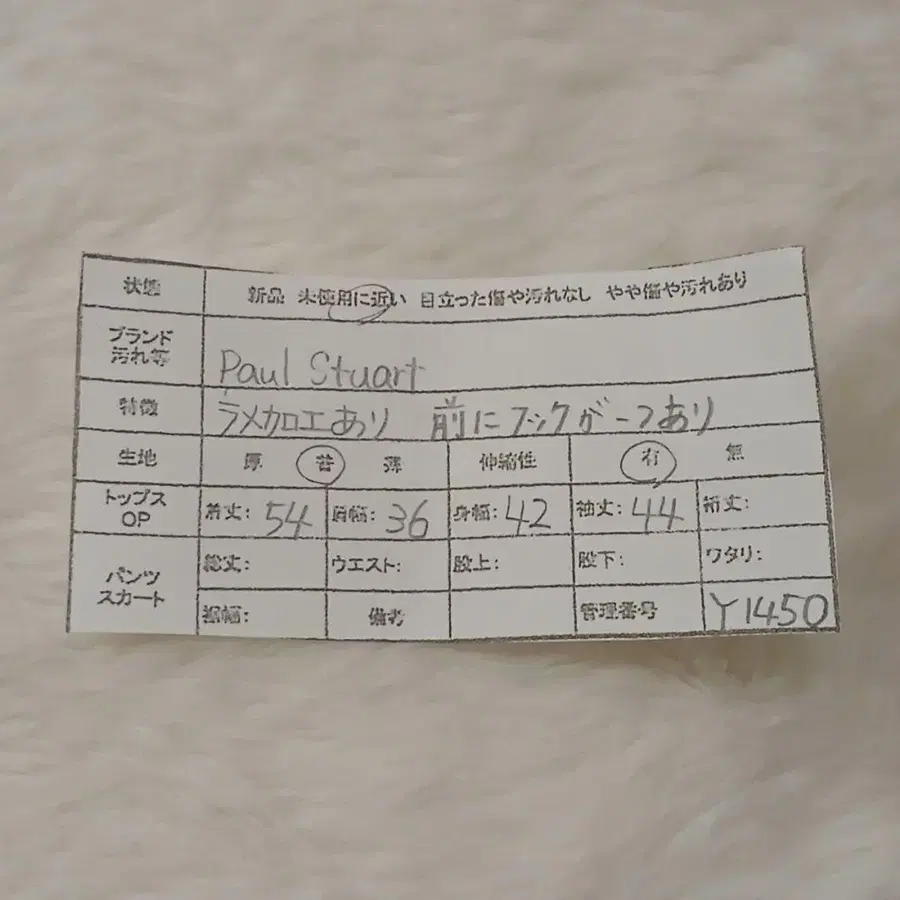 状態 新品 未使用に近い 目立った傷や汚れなし やや傷や汚れあり
ブランド
汚れ等 Paul Stuart
特徴 ラメカロエあり 前にフックが一つあり
生地 厚 普 薄 伸縮性 有 無
トップス
OP 着丈: 54 肩幅: 36 身幅: 42 袖丈: 44 裄丈:
パンツ
スカート 総丈: ウエスト: 股上: 股下: ワタリ:
裾幅: 備考 管理番号 Y1450